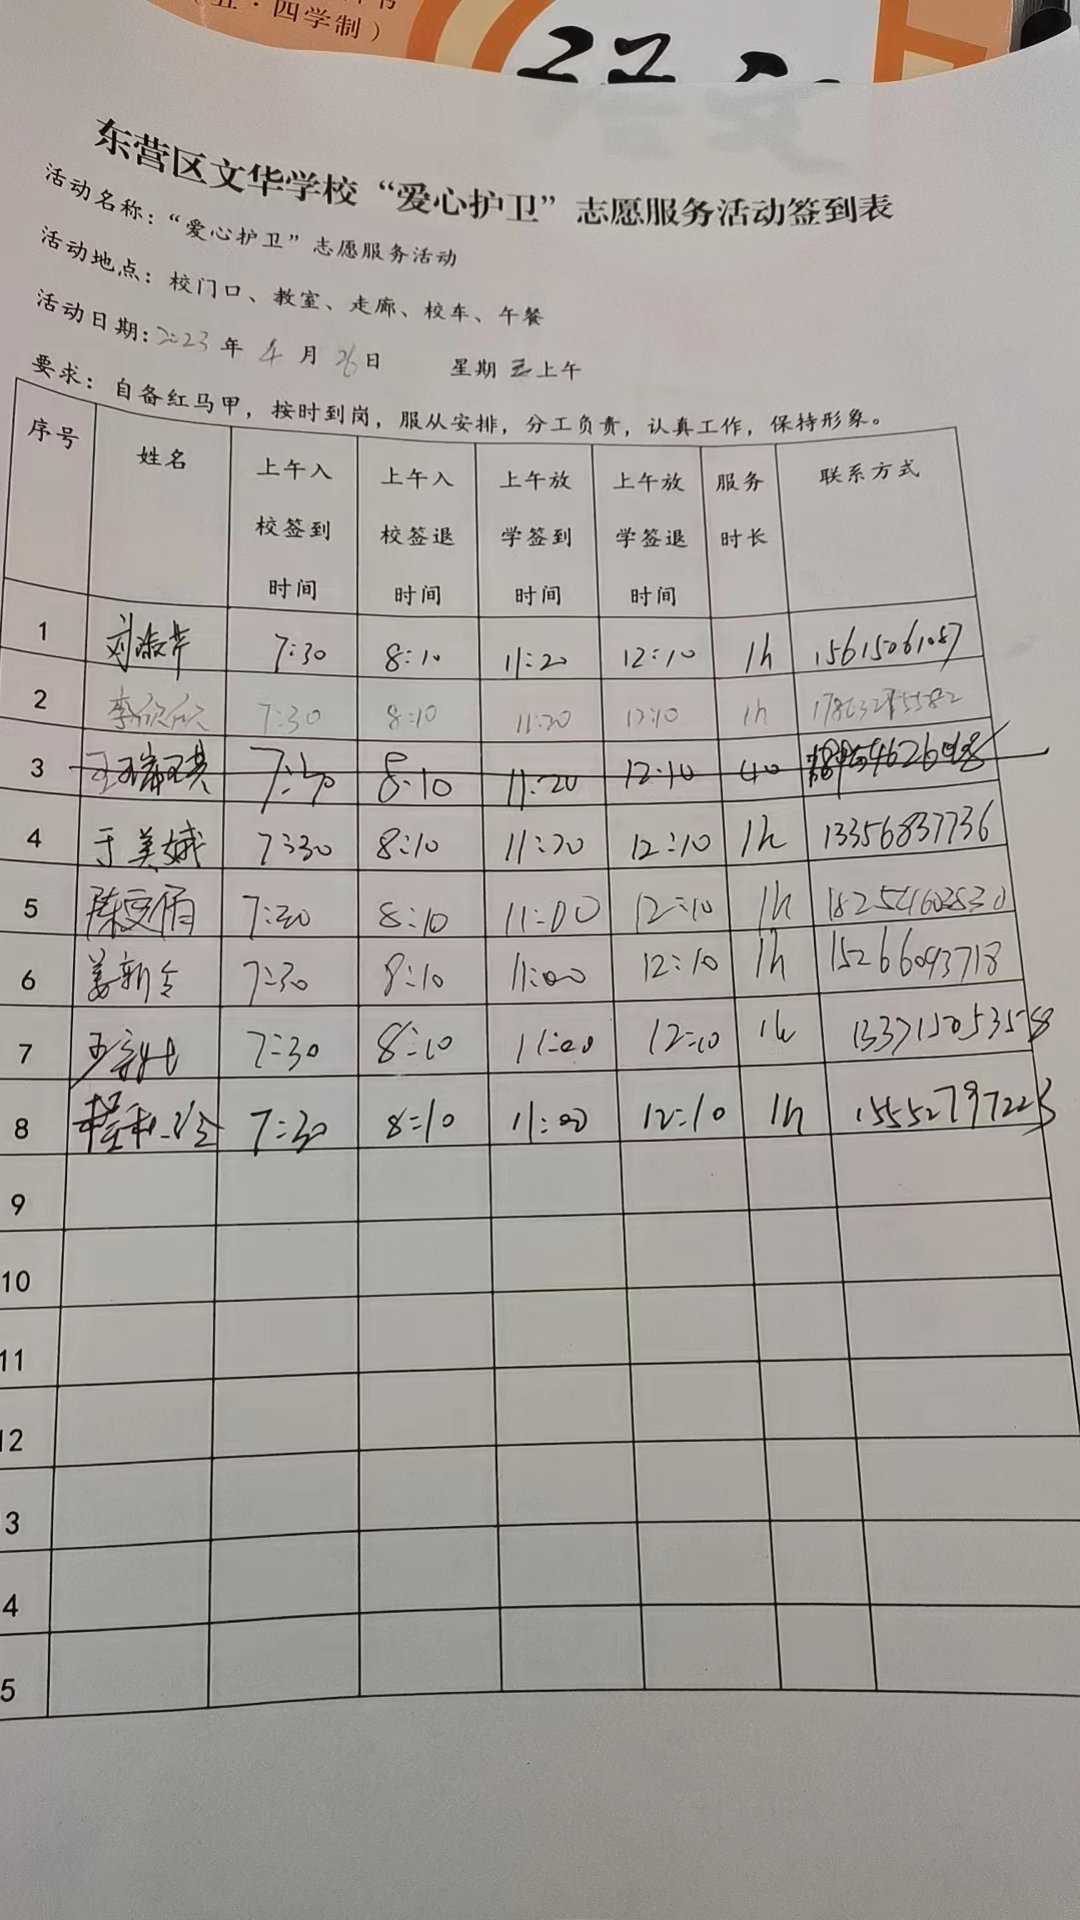 （五·四学制）
东营区文华学校“爱心护卫”志愿服务活动签到表
活动名称：“爱心护卫”志愿服务活动
活动地点：校门口、教室、走廊、校车、午餐
活动日期：2023年4月26日 星期三上午
要求：自备红马甲，按时到岗，服从安排，分工负责，认真工作，保持形象。
序号 姓名 上午入校签到时间 上午入校签退时间 上午放学签到时间 上午放学签退时间 服务时长 联系方式
1 刘淑芹 7:30 8:10 11:20 12:10 1h 15615061087
2 李欣欣 7:30 8:10 11:20 12:10 1h
3 王瑞琪 8:10 11:20 12:10 40
4 于美娥 7:30 8:10 11:20 12:10 1h 13356837736
5 7:30 8:10 11:00 12:10 1h
6 姜新全 7:30 8:10 11:00 12:10 1h 15266093718
7 7:30 8:10 11:00 12:10 1h 13371505358
8 7:30 8:10 11:00 12:10 1h 15552797223
9
10
11
12
3
4
5